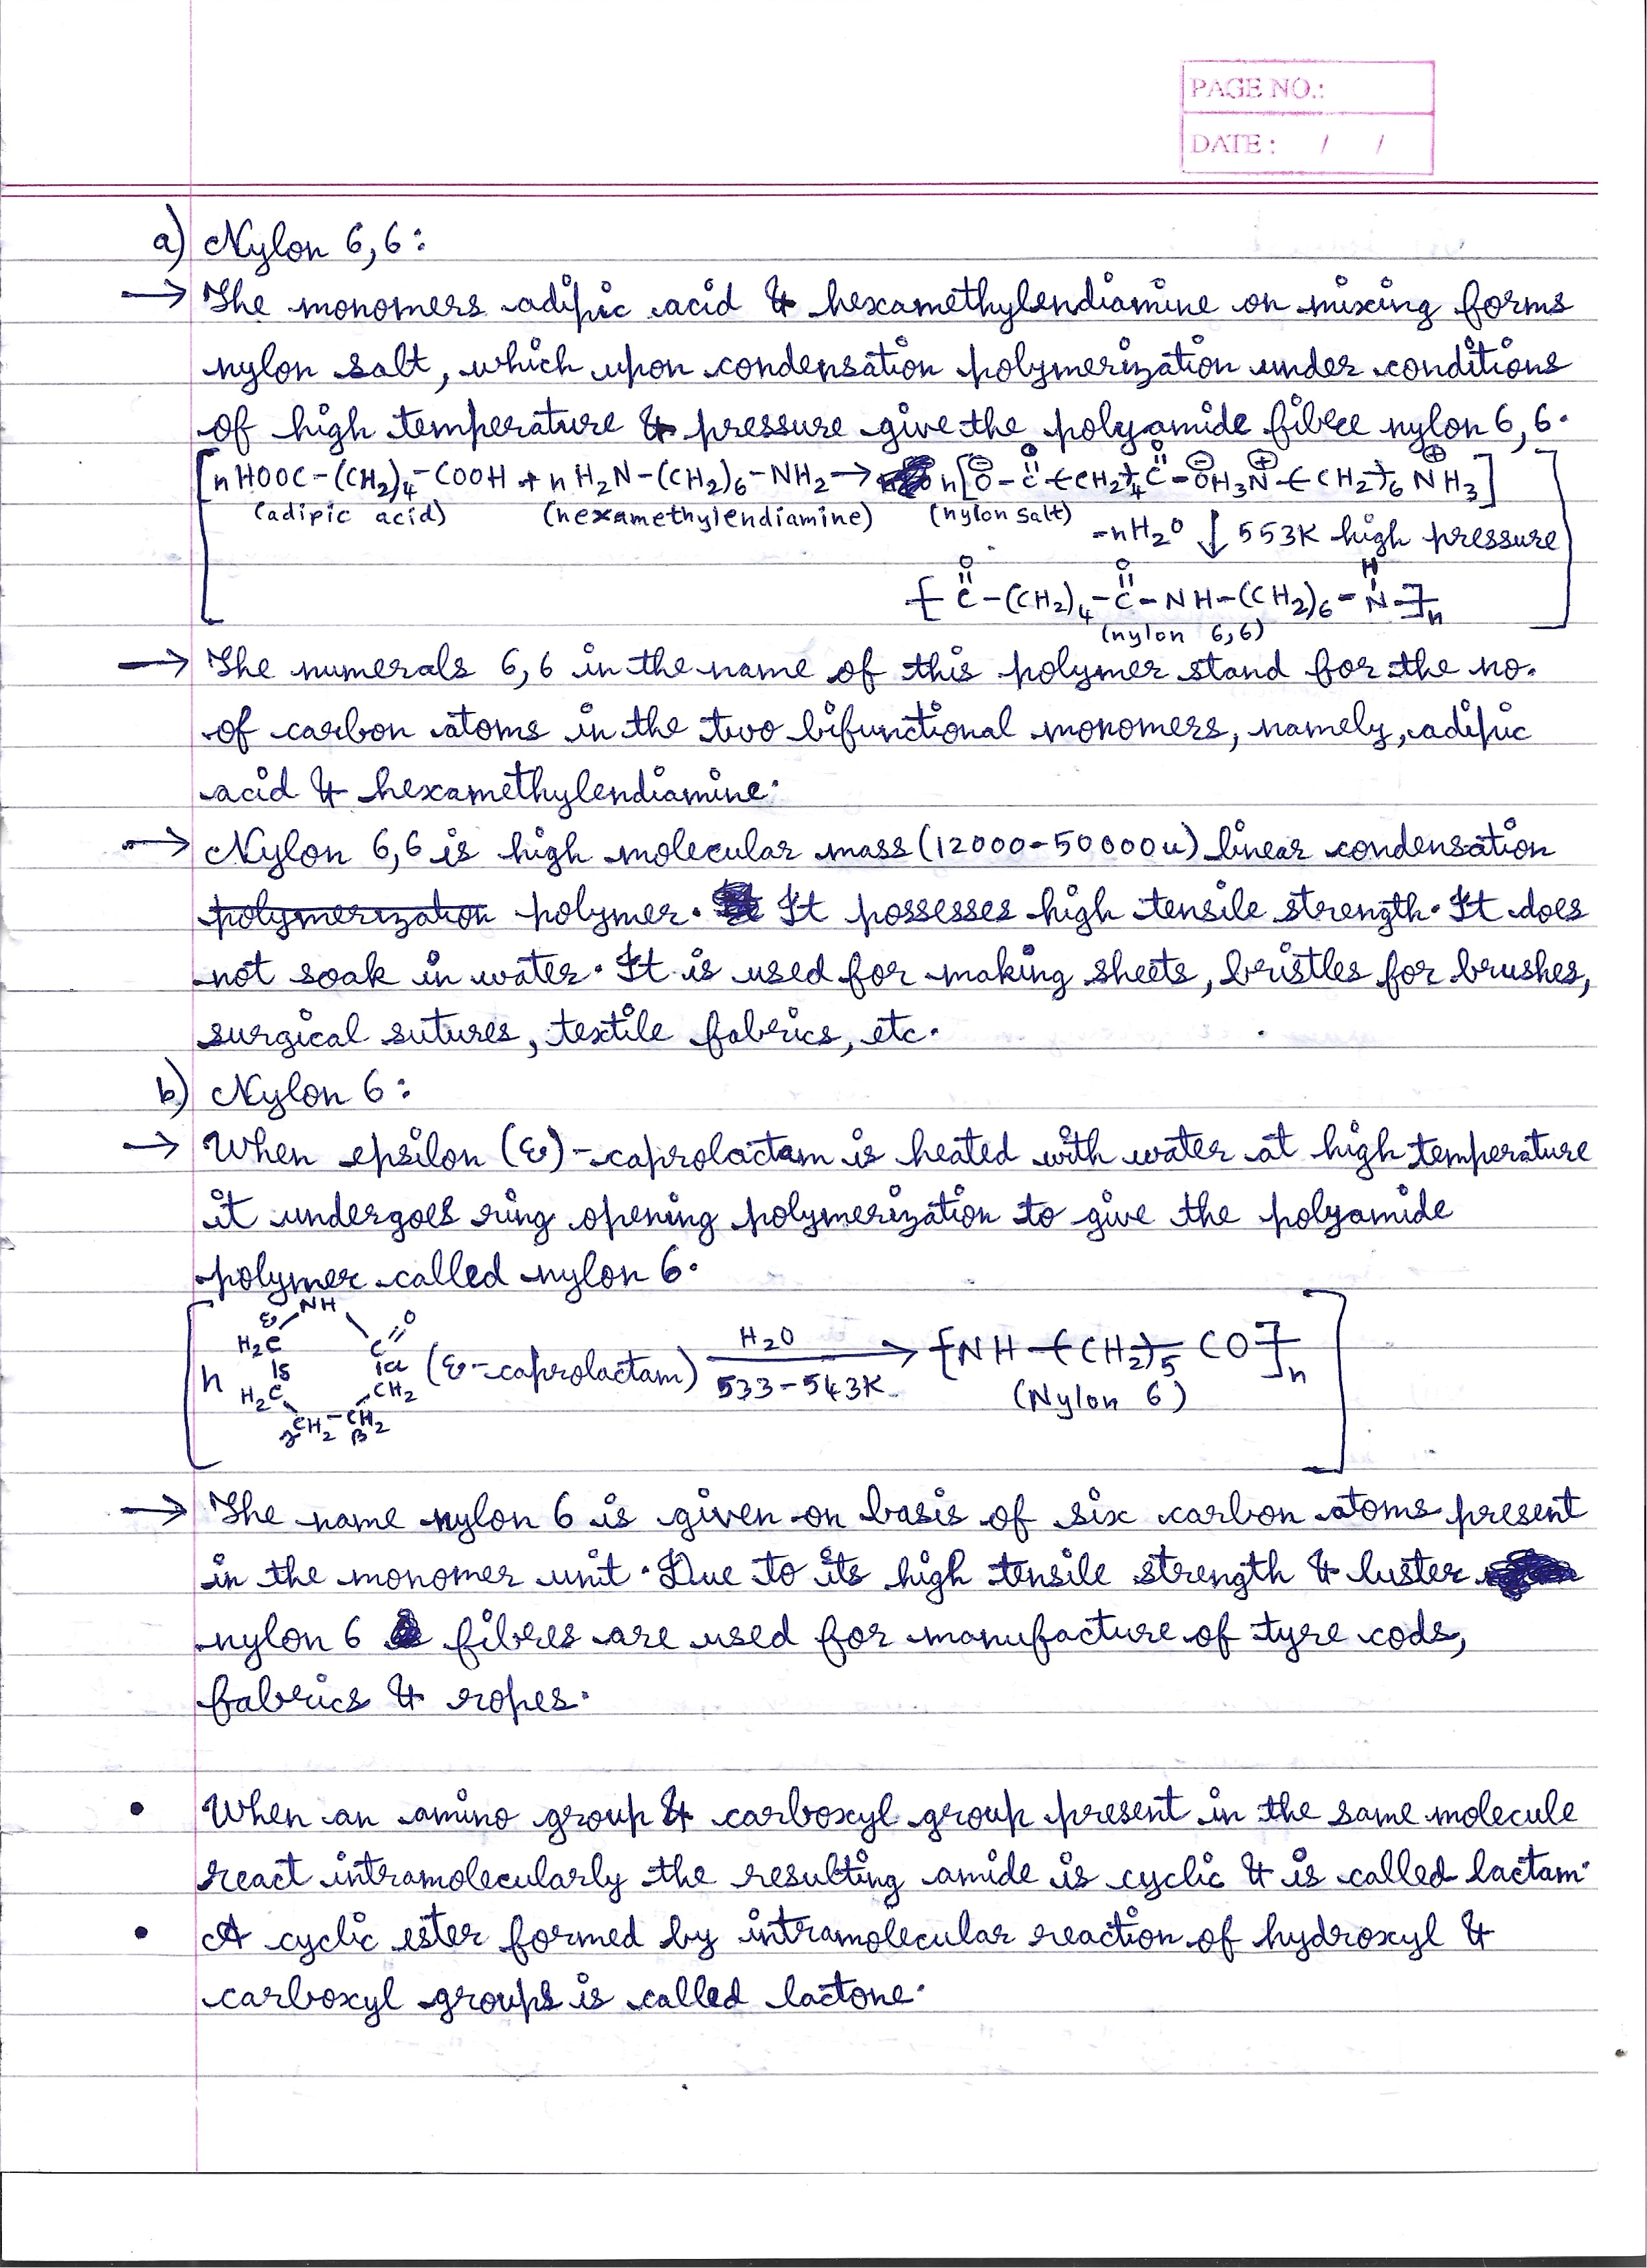 PAGE NO.:
DATE : / /
a) Nylon 6,6:
→ The monomers adipic acid & hexamethylendiamine on mixing forms
nylon salt, which upon condensation polymerization under conditions
of high temperature & pressure give the polyamide fibre nylon 6,6.
[nHOOC-(CH₂)₄-COOH + n H₂N-(CH₂)₆-NH₂ → n[⊖O-C(=O)-(CH₂)₄-C(=O)-O⊖ H₃N⊕-(CH₂)₆-NH₃⊕]
(adipic acid) (hexamethylendiamine) (nylon salt)
-nH₂O ↓ 553K high pressure
[-C(=O)-(CH₂)₄-C(=O)-NH-(CH₂)₆-N(H)-]n]
(nylon 6,6)
→ The numerals 6,6 in the name of this polymer stand for the no.
of carbon atoms in the two bifunctional monomers, namely, adipic
acid & hexamethylendiamine.
→ Nylon 6,6 is high molecular mass (12000-50000u) linear condensation
polymerization polymer. It possesses high tensile strength. It does
not soak in water. It is used for making sheets, bristles for brushes,
surgical sutures, textile fabrics, etc.
b) Nylon 6:
→ When epsilon (ε)-caprolactam is heated with water at high temperature
it undergoes ring opening polymerization to give the polyamide
polymer called nylon 6.
ε NH
H₂C C=O
n |δ |α (ε-caprolactam) H₂O → [NH-(CH₂)₅-CO]n
H₂C CH₂ 533-543K (Nylon 6)
γ CH₂-CH₂ β
→ The name nylon 6 is given on basis of six carbon atoms present
in the monomer unit. Due to its high tensile strength & luster
nylon 6 fibres are used for manufacture of tyre cods,
fabrics & ropes.
• When an amino group & carboxyl group present in the same molecule
react intramolecularly the resulting amide is cyclic & is called lactam.
• A cyclic ester formed by intramolecular reaction of hydroxyl &
carboxyl groups is called lactone.